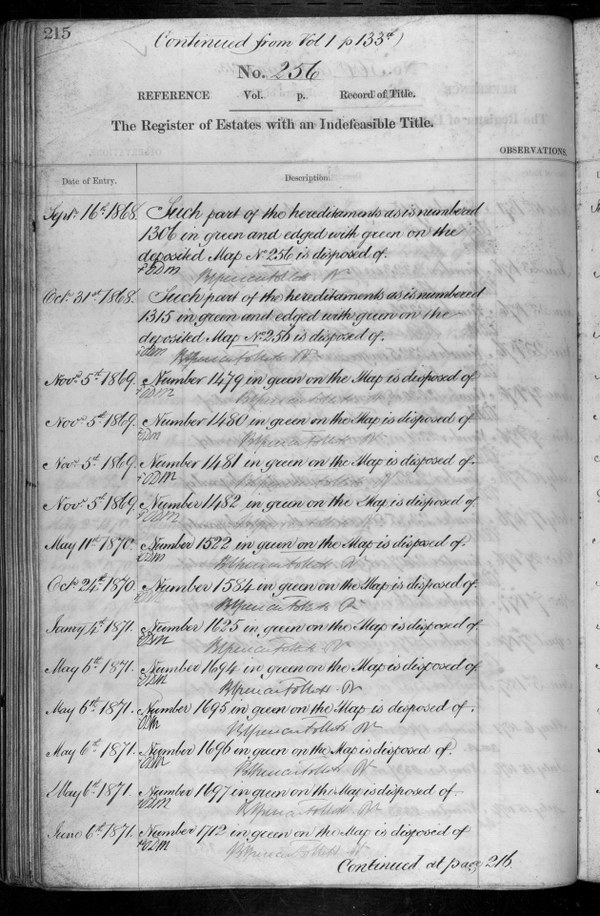 215
Continued from Vol 1 p 133
No. 256
REFERENCE Vol. p. Record of Title.
The Register of Estates with an Indefeasible Title.
OBSERVATIONS.
Date of Entry. Description.
Sept. 16th 1868. Such part of the hereditaments as is numbered
1306 in green and edged with green on the
deposited Map No 256 is disposed of.
Oct. 31st 1868. Such part of the hereditaments as is numbered
1315 in green and edged with green on the
deposited Map No 256 is disposed of.
Nov. 5th 1869. Number 1479 in green on the Map is disposed of
Nov. 5th 1869. Number 1480 in green on the Map is disposed of
Nov. 5th 1869. Number 1481 in green on the Map is disposed of
Nov. 5th 1869. Number 1482 in green on the Map is disposed of
May 11th 1870. Number 1522 in green on the Map is disposed of.
Oct. 24th 1870. Number 1584 in green on the Map is disposed of
Janry 4th 1871. Number 1625 in green on the Map is disposed of
May 6th 1871. Number 1694 in green on the Map is disposed of
May 6th 1871. Number 1695 in green on the Map is disposed of.
May 6th 1871. Number 1696 in green on the Map is disposed of.
May 6th 1871. Number 1697 in green on the Map is disposed of
June 6th 1871. Number 1712 in green on the Map is disposed of
Continued at page 216.